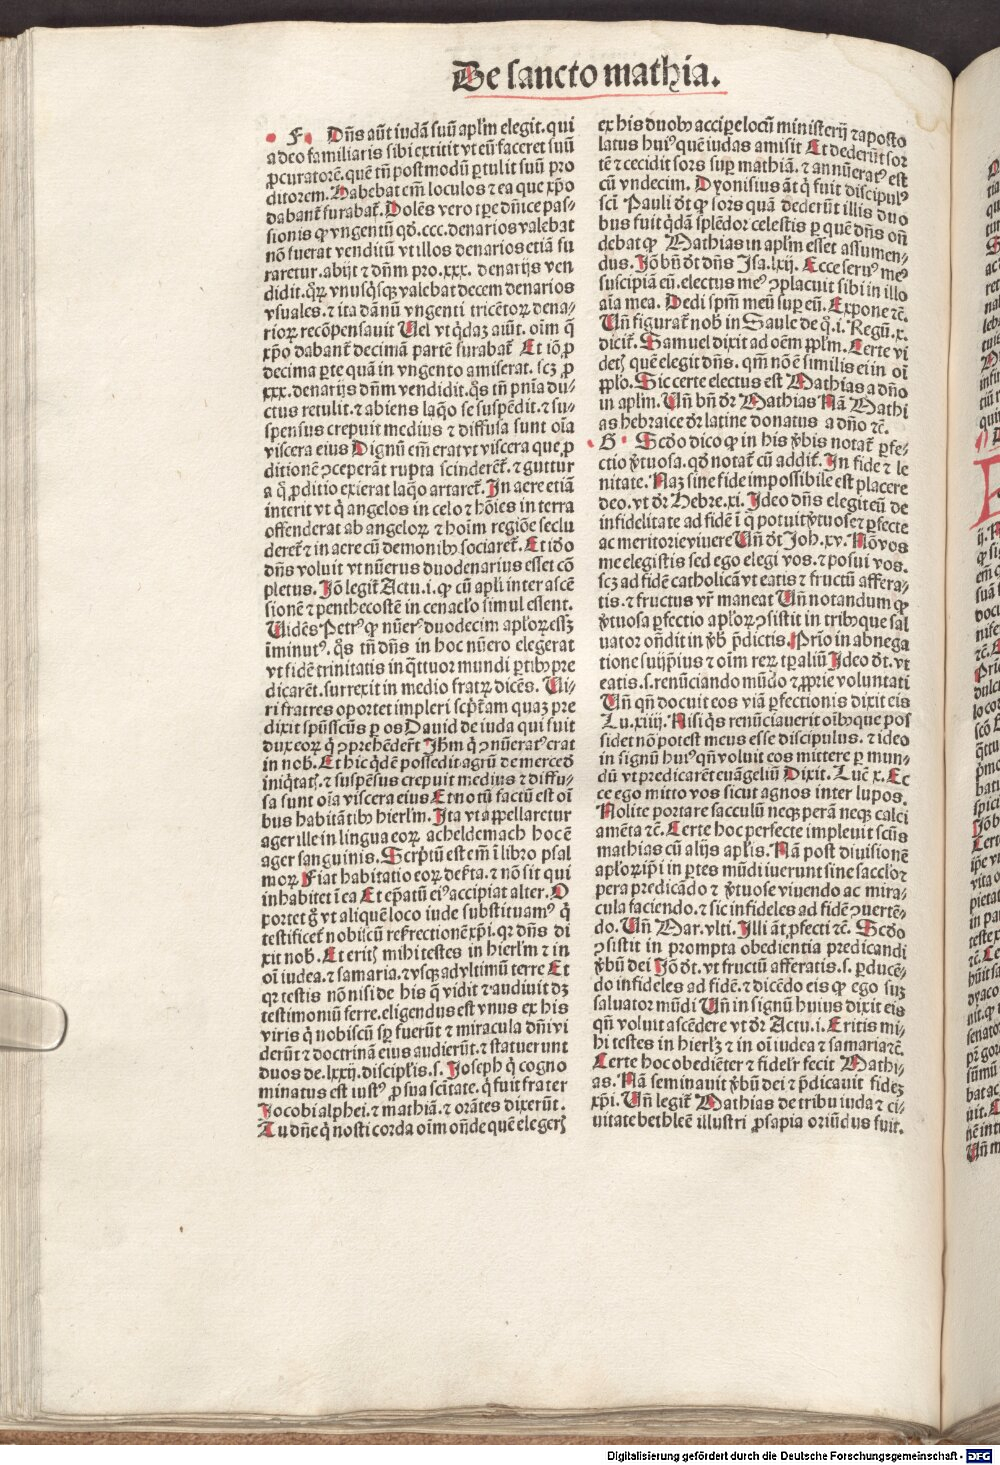 De sancto mathia.
F. Dn̄s aūt iudā suū aplm̄ elegit. qui
adeo familiaris sibi extitit vt eū faceret suū
ꝓcuratorē. quē tn̄ postmodū ꝑtulit suū pro
ditorem. Habebat em̄ loculos ⁊ ea que xp̄o
dabant᷑ furabat᷑. Dolēs vero tꝑe dn̄ice pas⸗
sionis ꝙ vngentū qd̄. ccc. denarios valebat
nō fuerat venditū vt illos denarios etiā fu
raretur. abijt ⁊ dn̄m pro. xxx. denarijs ven
didit. qꝝ vnusq̄sqꝫ valebat decem denarios
vsuales. ⁊ ita dānū vngenti tricētoꝝ dena⸗
rioꝝ recōpensauit Uel vt q̄daꝫ aiūt. oīm q̄
xp̄o dabant᷑ decimā partē furabat᷑ Et iō ꝓ
decima ꝑte quā in vngento amiserat. scꝫ ꝓ
xxx. denarijs dn̄m vendidit. q̄s tn̄ pn̄ia du⸗
ctus retulit. ⁊ abiens laq̄o se suspēdit. ⁊ su⸗
spensus crepuit medius ⁊ diffusa sunt oīa
viscera eius Dignū em̄ erat vt viscera que ꝓ
ditionē ꝯceperāt rupta scinderēt᷑. ⁊ guttur
a q̄ ꝓditio exierat laq̄o artaret᷑. In aere etiā
interit vt q̄ angelos in celo ⁊ hoīes in terra
offenderat ab angeloꝝ ⁊ hoīm regiōe seclu
deret᷑ ⁊ in aere cū demonibꝰ sociaret᷑. Et iō
dn̄s voluit vt nūerus duodenarius esset cō
pletus. Iō legit᷑ Actu. i. ꝙ cū apl̄i inter ascē
sionē ⁊ penthecostē in cenacl̓o simul essent.
Uidēs Petrꝰ ꝙ nūerꝰ duodecim apl̓oꝝ essꝫ
īminutꝰ. q̄s tn̄ dn̄s in hoc nūero elegerat
vt fidē trinitatis in q̄ttuor mundi ꝑtibꝰ pre
dicarēt. surrexit in medio fratꝝ dicēs. Ui⸗
ri fratres oportet impleri scpt᷑am quaꝫ pre
dixit spūsscūs ꝑ os Dauid de iuda qui fuit
dux eoꝝ q̄ ꝯprehēder̄t Ihm̄ q̄ ꝯnūeratꝰ erat
in nob̄. Et hic q̄dē possedit agrū de mercede
iniq̄tatꝭ. ⁊ suspēsus crepuit medius ⁊ diffu⸗
sa sunt oīa viscera eius Et notū factū est oī
bus habitātibꝰ hierl̓m. Ita vt appellaretur
ager ille in lingua eoꝝ acheldemach hoc ē
ager sanguinis. Scriptū est em̄ ī libro psal
moꝝ Fiat habitatio eoꝝ def̄ta. ⁊ nō sit qui
inhabitet ī ea Et ep̄atū eiꝰ accipiat alter. O
portet g̊ vt aliquē loco iude substituamꝰ q̄
testificet᷑ nobiscū refrectionē xp̄i. qꝛ dn̄s di
xit nob̄. Et eritꝭ mihi testes in hierl̓m ⁊ in
oī iudea. ⁊ samaria. ⁊ vsqꝫ ad vltimū terre Et
qꝛ testis nō nisi de his q̄ vidit ⁊ audiuit dꝫ
testimoniū ferre. eligendus est vnus ex his
viris q̄ nobiscū sp̄ fuerūt ⁊ miracula dn̄i vi
derūt ⁊ doctrinā eius audierūt. ⁊ statuerunt
duos de. lxxij. discipl̓is. s. Joseph q̄ cogno
minatus est iustꝰ ꝓ sua scītate. q̄ fuit frater
Jocobi alphei. ⁊ mathiā. ⁊ orātes dixerūt.
Tu dn̄e q̄ nosti corda oīm ondē quē elegerꝭ
ex his duobꝰ acciꝑe locū ministerij ⁊ aposto
latus huiꝰ quē iudas amisit Et dederūt sor
tē ⁊ cecidit sors suꝑ mathiā. ⁊ annūeratꝰ est
cū vndecim. Dyonisius āt q̄ fuit discipulꝰ
scī Pauli dt̄ ꝙ sors quā dederūt illis duo
bus fuit q̄dā splēdor celestis ꝑ quē dn̄s on̄
debat ꝙ Mathias in aplm̄ esset assumen⸗
dus. Iō bn̄ dt̄ dn̄s Isa. lxij. Ecce seruꝰ meꝰ
suscipiā eū. electus meꝰ ꝯplacuit sibi in illo
aīa mea. Dedi spm̄ meū suꝑ eū. Expone ⁊c̄.
Un̄ figurat᷑ nob̄ in Saule de q̄. i. Regū. x.
dicit᷑. Samuel dixit ad oēm pplm̄. Certe vi
detꝭ quē elegit dn̄s. qm̄ nō ē similis ei in oī
ppl̓o. Sic certe electus est Mathias a dn̄o
in aplm̄. Un̄ bn̄ dr̄ Mathias Nā Mathi
as hebraice dr̄ latine donatus a dn̄o ⁊c̄.
G. Scd̄o dico ꝙ in his v̄bis notat᷑ ꝑfe⸗
ctio v̄tuosa. qd̄ notat᷑ cū addit᷑. In fide ⁊ le
nitate. Naꝫ sine fide impossibile est placere
deo. vt dr̄ Hebre. xi. Ideo dn̄s elegit eū de
infidelitate ad fidē ī q̄ potuit v̄tuose ⁊ ꝑfecte
ac meritorie viuere Un̄ dt̄ Joh. xv. Nō vos
me elegistis sed ego elegi vos. ⁊ posui vos.
scꝫ ad fidē catholicā vt eatis ⁊ fructū affera⸗
tis. ⁊ fructus vr̄ maneat Un̄ notandum ꝙ
v̄tuosa ꝑfectio apl̓oꝝ ꝯsistit in tribꝰ que sal
uator on̄dit in v̄b̄ p̄dictis. Prīo in abnega
tione suijpsius ⁊ oīm reꝝ tꝑaliū Ideo dt̄. vt
eatis. s. renūciando mūdo ⁊ ꝓprie voluntati
Un̄ qn̄ docuit eos viā ꝑfectionis dixit eis
Lu. xiiij. Nisi q̄s renūciauerit oībꝰ que pos
sidet nō potest meus esse discipulus. ⁊ ideo
in signū huiꝰ qn̄ voluit eos mittere ꝑ mun⸗
dū vt predicarēt euāgeliū Dixit. Luē x. Ec
ce ego mitto vos sicut agnos inter lupos.
Nolite portare sacculū neqꝫ perā neqꝫ calci
amēta ⁊c̄. Certe hoc perfecte impleuit scūs
mathias cū alijs apl̓is. Nā post diuisionē
apl̓oꝝ ip̄i in ꝑtes mūdi iuerunt sine saccl̓o ⁊
pera predicādo ⁊ v̄tuose viuendo ac mira⸗
cula faciendo. ⁊ sic infideles ad fidē ꝯuertē⸗
do. Un̄ Mar. vlti. Illi āt ꝓfecti ⁊c̄. Scd̄o
ꝯsistit in prompta obedientia predicandi
v̄bū dei Iō dt̄. vt fructū afferatis. s. ꝑducē⸗
do infideles ad fidē. ⁊ dicēdo eis ꝙ ego suꝫ
saluator mūdi Un̄ in signū huius dixit eis
qn̄ voluit ascēdere vt dr̄ Actu. i. Eritis mi⸗
hi testes in hierlꝫ ⁊ in oī iudea ⁊ samaria ⁊c̄.
Certe hoc obediēter ⁊ fidelr̄ fecit Mathi⸗
as. Nā seminauit v̄bū dei ⁊ p̄dicauit fideꝫ
xp̄i. Un̄ legit᷑ Mathias de tribu iuda ⁊ ci⸗
uitate bethleē illustri ꝓsapia oriūdus fuit.
Digitalisierung gefördert durch die Deutsche Forschungsgemeinschaft - DFG